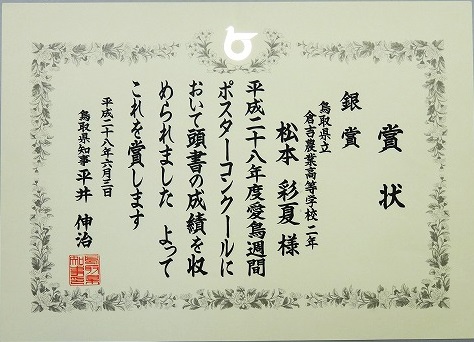 賞状
銀賞
鳥取県立
倉吉農業高等学校 二年
松本 彩夏 様
平成二十八年度愛鳥週間
ポスターコンクールに
おいて頭書の成績を収
められました よって
これを賞します
平成二十八年六月三日
鳥取県知事 平井 伸治